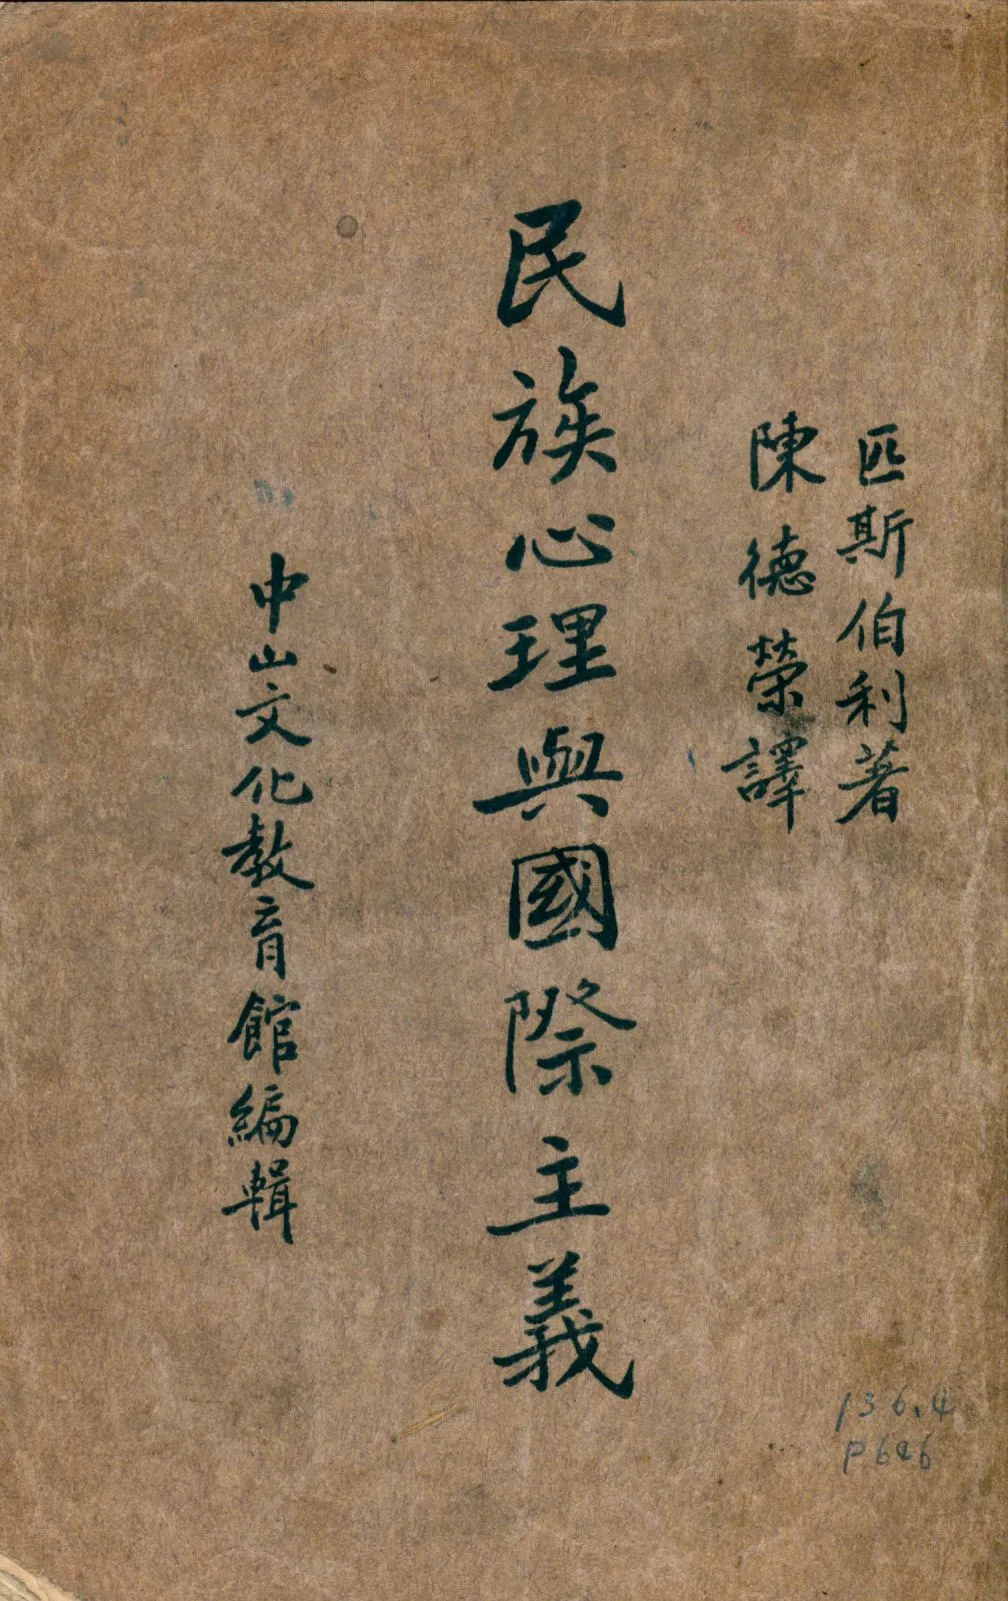 匹斯伯利著
陳德榮譯
民族心理與國際主義
中山文化教育館編輯
136.4
P6a6